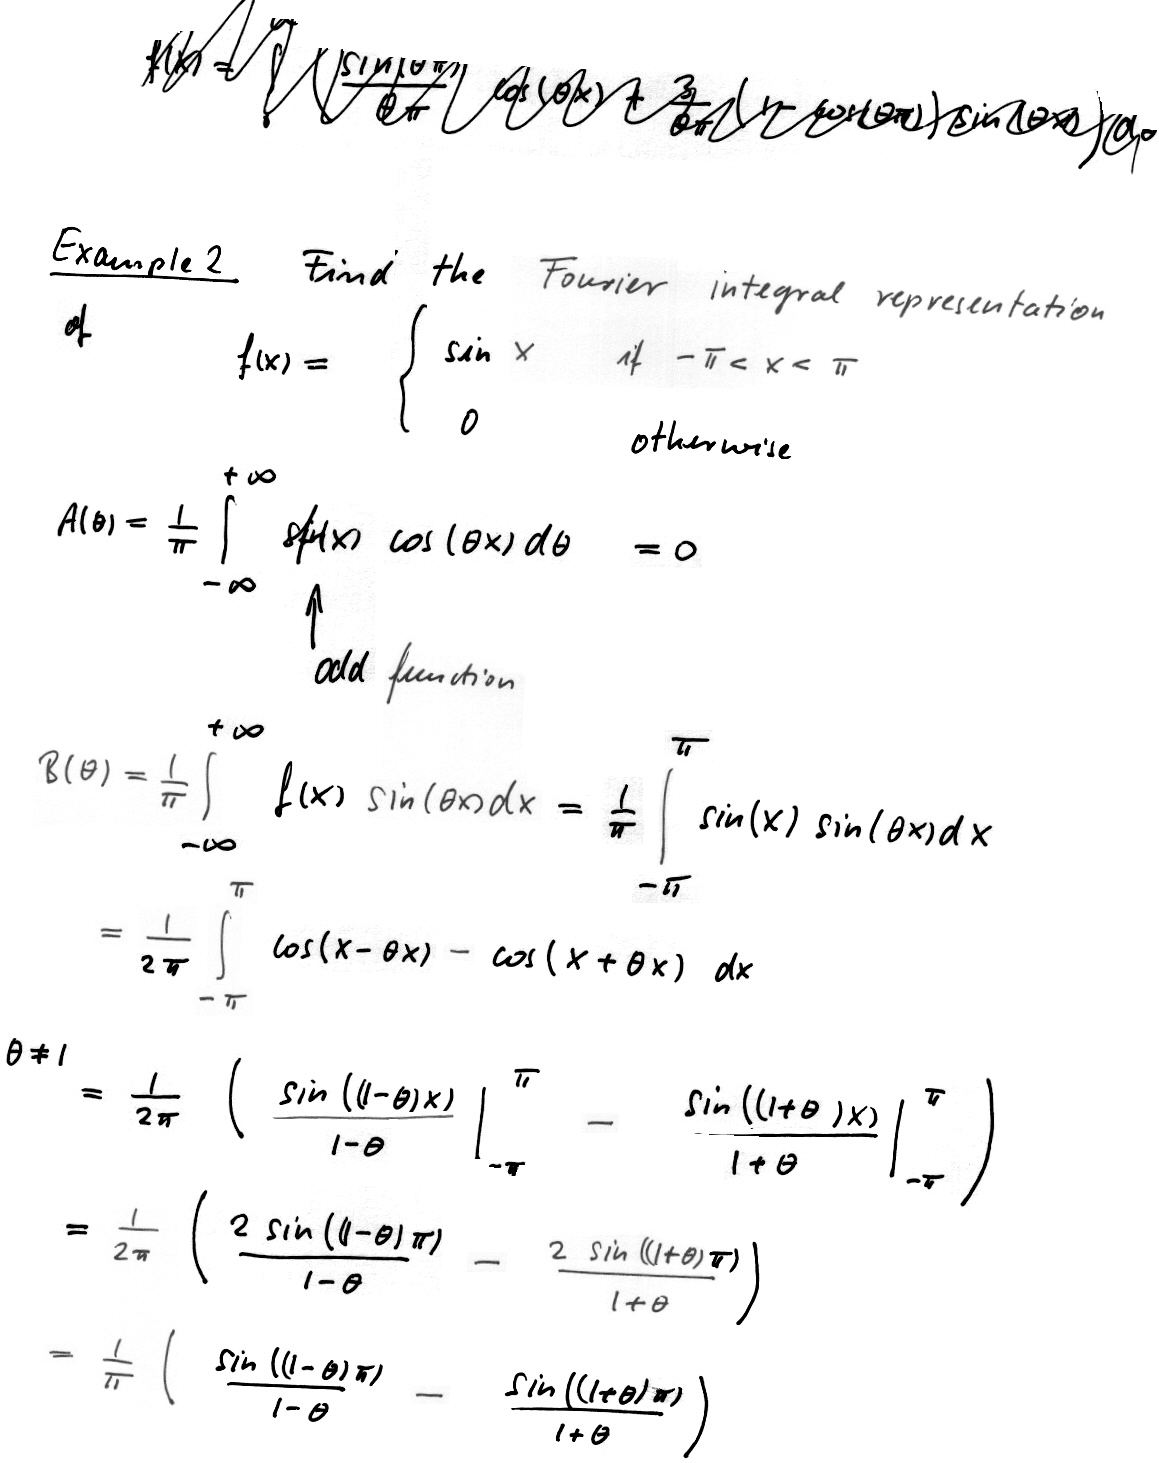 f(x) = ∫ ( sin(θπ)/θπ cos(θx) + 3/θπ (1 - cos(θπ)) sin(θx) ) dθ
Example 2 Find the Fourier integral representation
of
f(x) = { sin x if -π < x < π
0 otherwise
A(θ) = 1/π ∫_{-∞}^{+∞} f(x) cos(θx) dθ = 0
↑
odd function
B(θ) = 1/π ∫_{-∞}^{+∞} f(x) sin(θx) dx = 1/π ∫_{-π}^{π} sin(x) sin(θx) dx
= 1/2π ∫_{-π}^{π} cos(x - θx) - cos(x + θx) dx
θ ≠ 1
= 1/2π ( sin((1-θ)x)/1-θ |_{-π}^{π} - sin((1+θ)x)/1+θ |_{-π}^{π} )
= 1/2π ( 2 sin((1-θ)π)/1-θ - 2 sin((1+θ)π)/1+θ )
= 1/π ( sin((1-θ)π)/1-θ - sin((1+θ)π)/1+θ )